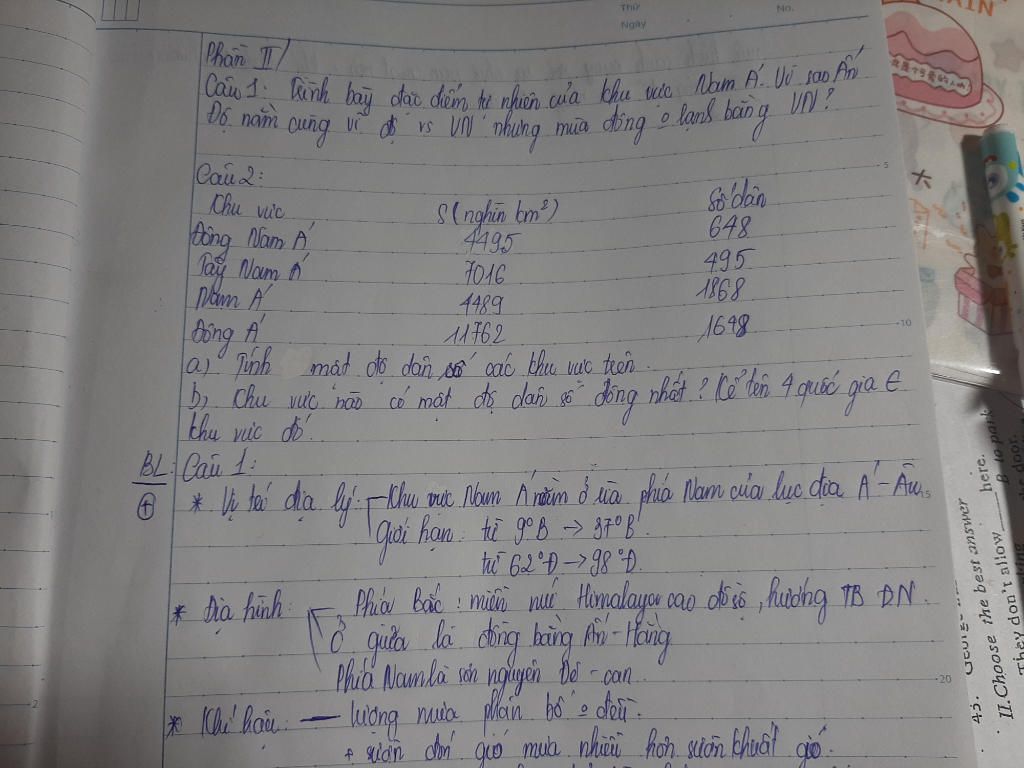 Thứ
Ngày
No.
Phần II/
Câu 1: Trình bày đặc điểm tự nhiên của khu vực Nam Á. Vì sao Ấn
Độ nằm cùng vĩ độ vs VN nhưng mùa đông o lạnh bằng VN?
Câu 2:
Khu vực S (nghìn km²) Số dân
Đông Nam Á 4495 648
Tây Nam Á 7016 495
Nam Á 4489 1868
Đông Á 11762 1648
a) Tính mật độ dân số các khu vực trên.
b) Khu vực nào có mật độ dân số đông nhất? Kể tên 4 quốc gia ∈
khu vực đó.
BL: Câu 1:
* Vị trí địa lý: Khu vực Nam Á nằm ở rìa phía Nam của lục địa Á - Âu
Giới hạn: từ 9°B → 37°B
từ 62°Đ → 98°Đ.
* Địa hình: Phía Bắc: miền núi Himalaya cao đồ sộ, hướng TB ĐN.
Ở giữa là đồng bằng Ấn - Hằng
Phía Nam là sơn nguyên Đê - can
* Khí hậu: — lượng mưa phân bố o đều.
+ sườn đón gió mưa nhiều hơn sườn khuất gió.
5
10
15
20
2
大
II. Choose the best answer
They don't allow ____ here.
B to park
43.